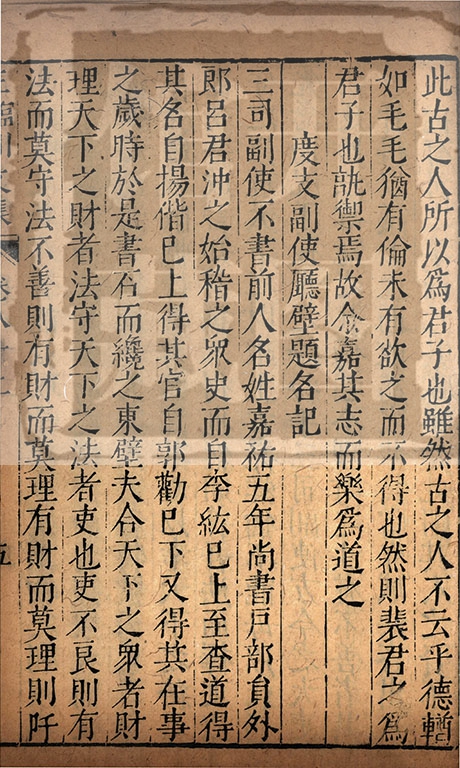 此古之人所以爲君子也雖然古之人不云乎德輶
如毛毛猶有倫未有欲之而不得也然則裴君之爲
君子也孰禦焉故余嘉其志而樂爲道之
度支副使廳壁題名記
三司副使不書前人名姓嘉祐五年尚書戶部員外
郎呂君沖之始稽之眾史而自李紘已上至查道得
其名自揚偕已上得其官自郭勸已下又得其在事
之歲時於是書石而纔之東壁夫合天下之眾者財
理天下之財者法守天下之法者吏也吏不良則有
法而莫守法不善則有財而莫理有財而莫理則阡
王臨川文集 卷八十二 五